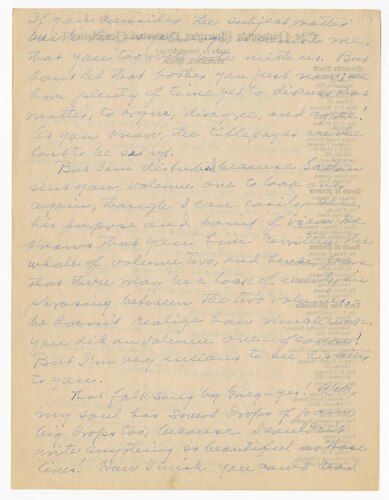 If you consider the subject matter
that you
don't let that bother you just now, we
have plenty of time yet to discuss that
matter, to argue, disagree, and agree!
As you know, the title pages are the
last to be set up.
But I am disturbed because
sent you volume one to look over
again, though I can easily see
his purpose and point of view. He
knows that you have rewritten the
whole of volume two, and
that there may be a lack of unity in
phrasing between the two volumes.
he doesn't realize how much work
you did on volume one - of course!
But I'm very anxious to see his letter
to you.
That folk song by Grieg - yes! Well
my soul has sweat drops of
big drops too, because I couldn't
write anything so beautiful as those
lines! How I wish you could read